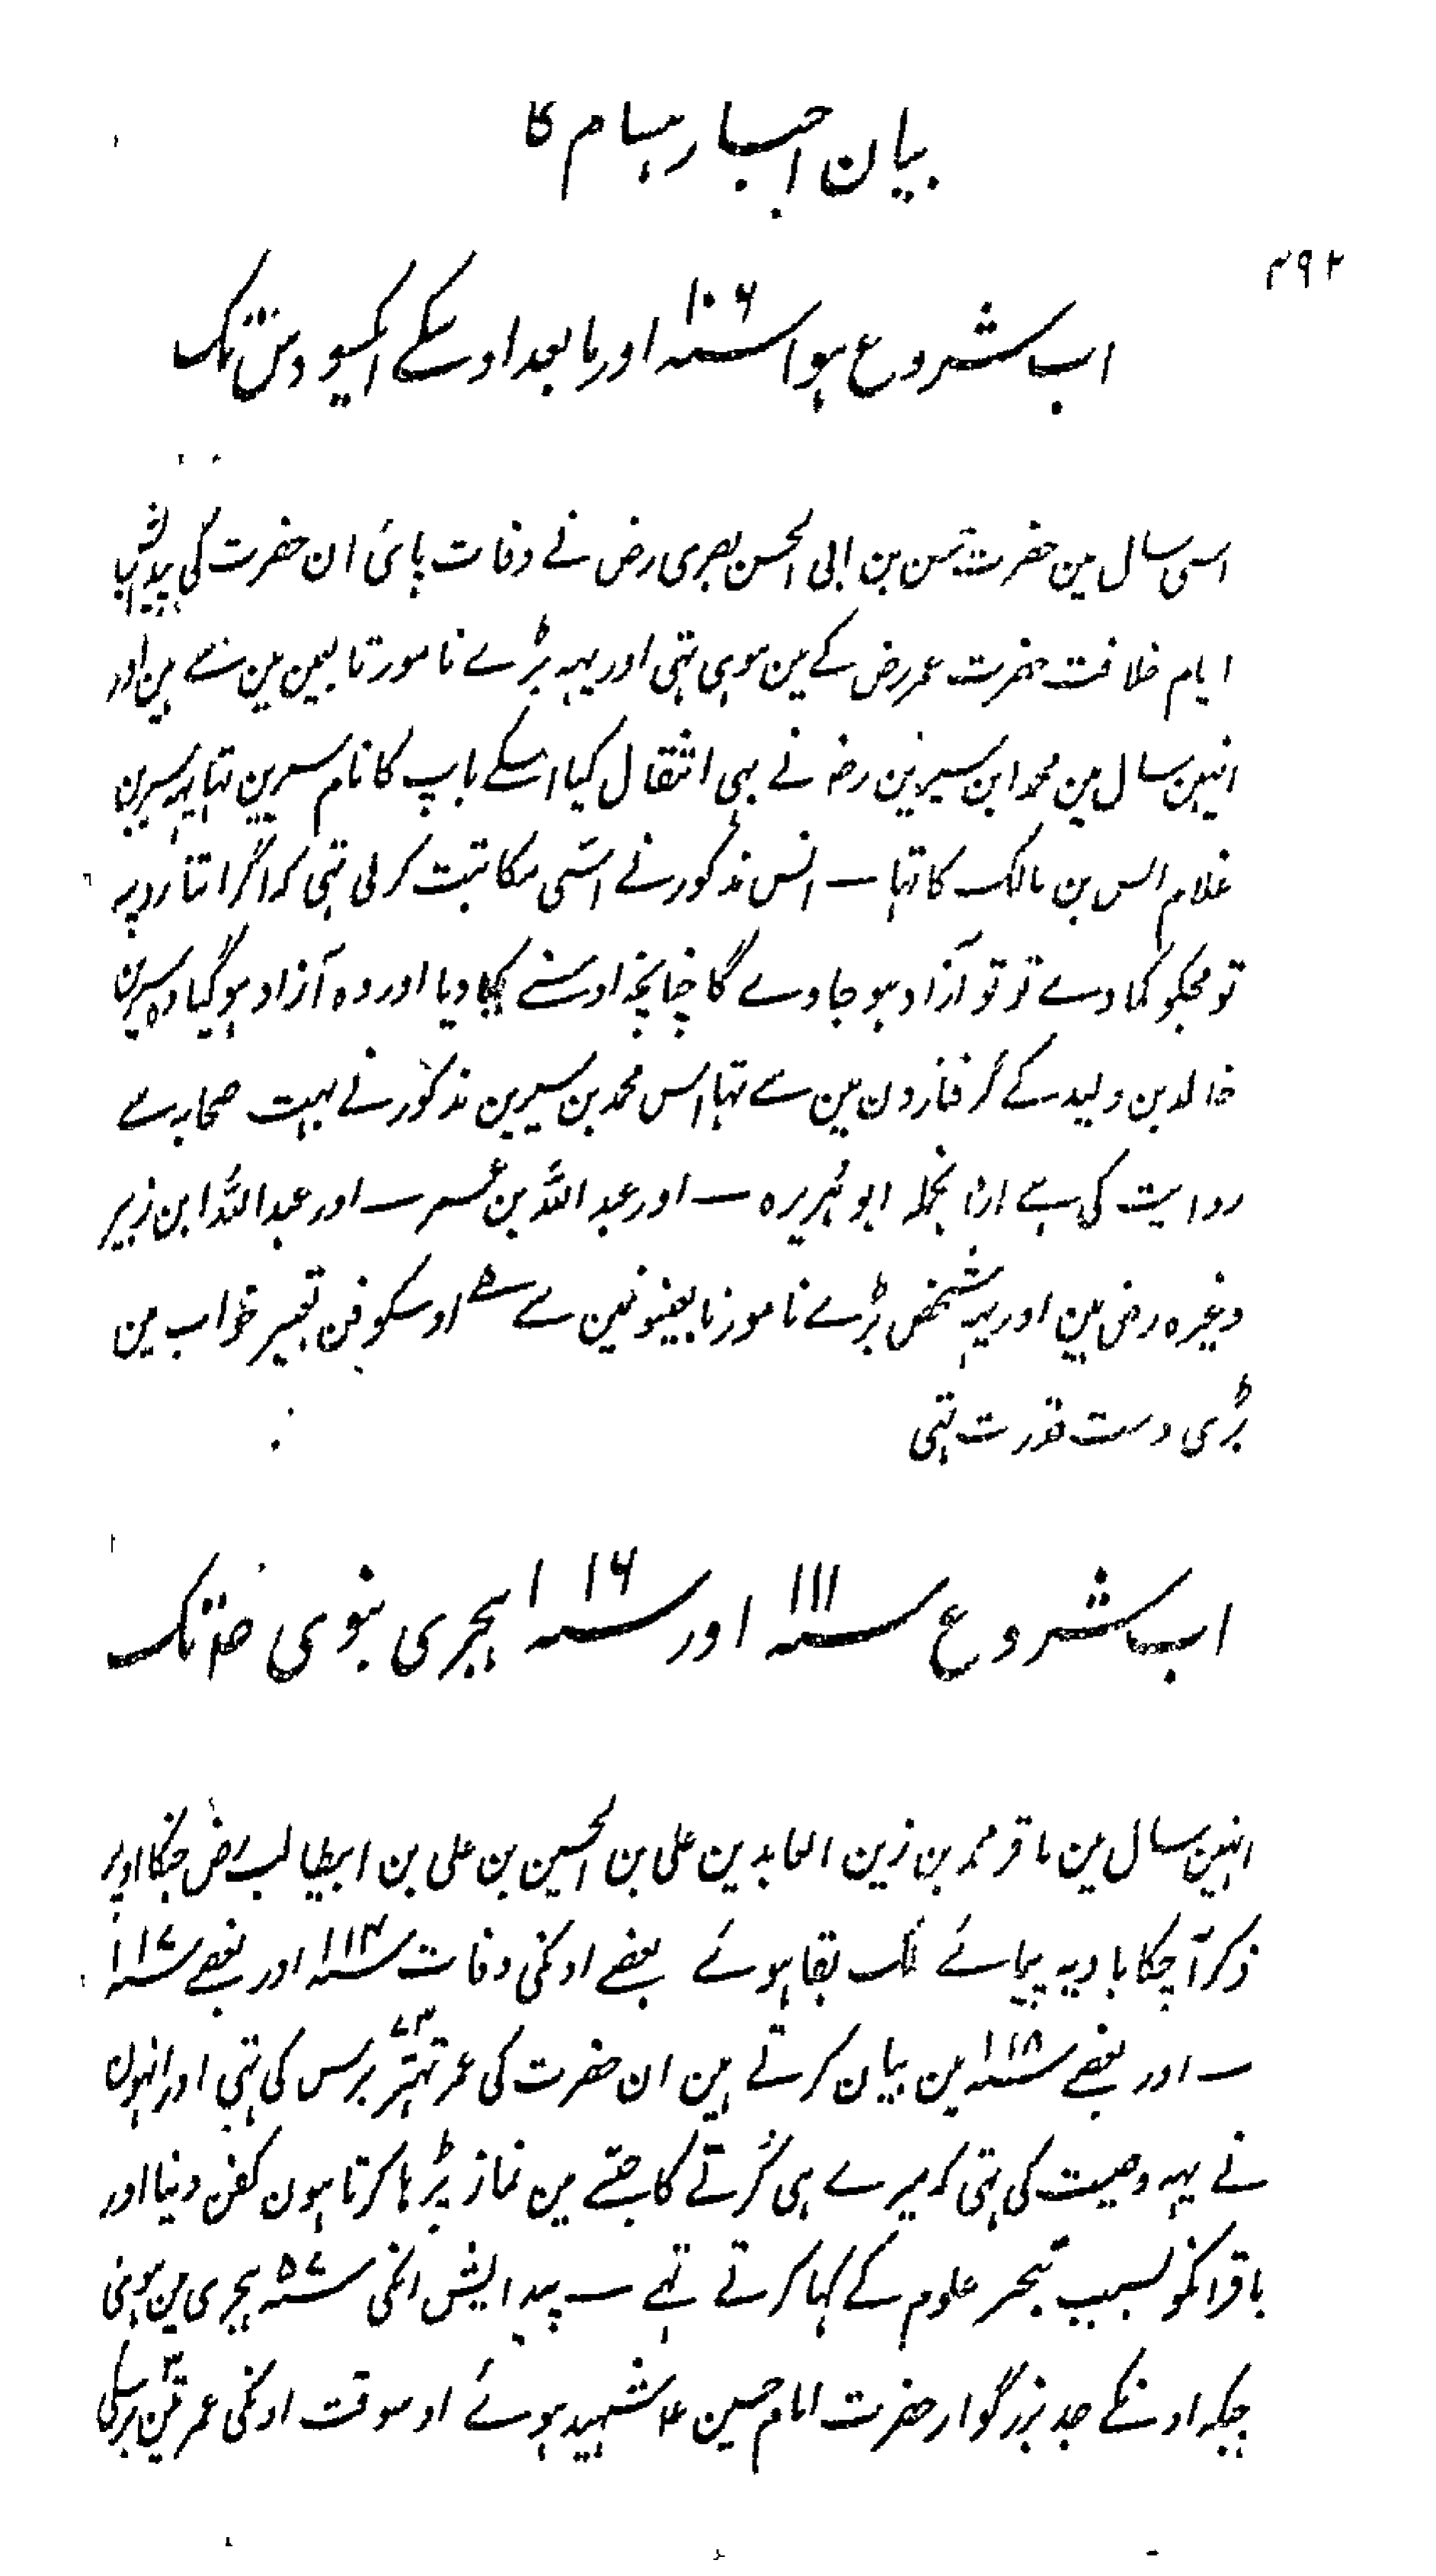 بیان اخبار ہشام کا
۲۹۲
اب شروع ہوا سنہ ۱۰۶ اور ما بعد اوسکے ایکسو دس تک
اسی سال مین حضرت حسن بن ابی الحسن بصری رض نے وفات پائی ان حضرت کی پیدایش
ایام خلافت حضرت عمر رض کے مین ہوی تہی اور یہہ بڑے نامور تابعین مین سے ہین اور
انہین سال مین محمد ابن سیرین رض نے بہی انتقال کیا اسکے باپ کا نام سیرین تہا یہہ سیرین
غلام انس بن مالک کا تہا ــ انس مذکور نے اسّی مکاتبت کر لی تہی کہ اگر اتنا روپیہ
تو مجکو کما دے تو تو آزاد ہو جاوے گا چنانچہ اوسنے کما دیا اور وہ آزاد ہو گیا وہ سیرین
خالد بن ولید کے گرفتارون مین سے تہا اس محمد بن سیرین مذکور نے بہت صحابہ سے
روایت کی ہے ازانجملہ ابو ہُریرہ ــ اور عبد اللّٰہ بن عُمر ــ اور عبد اللّٰہ ابن زبیر
وغیرہ رض ہین اور یہہ شخص بڑے نامور تابعینو نمین سے تہے اوسکو فن تعبیر خواب مین
بڑی دست قدرت تہی
اب شروع سنہ ۱۱۱ اور سنہ ۱۱۶ ہجری نبوی صلم تک
انہین سال مین باقر محمد بن زین العابدین علی بن الحسین بن علی بن ابیطالب رض جنکا اوپر
ذکر آ چکا بادیہ پیمائے ملک بقا ہوئے بعضے اونکی وفات سنہ ۱۱۴ اور بعضے سنہ ۱۱۷
ــ اور بعضے سنہ ۱۱۸ مین بیان کرتے ہین ان حضرت کی عمر تہتر ۷۳ برس کی تہی اور انہون
نے یہہ وصیت کی تہی کہ میرے ہی کُرتے کا جسے مین نماز پڑہا کرتا ہون کفن دینا اور
باقر انکو بسبب تبحر علوم کے کہا کرتے تہے ــ پیدایش انکی سنہ ۵۷ ہجری مین ہوئی
جبکہ اونکے جد بزرگوار حضرت امام حسین ع شہید ہوئے اوسوقت اونکی عمر تین ۳ برسکی